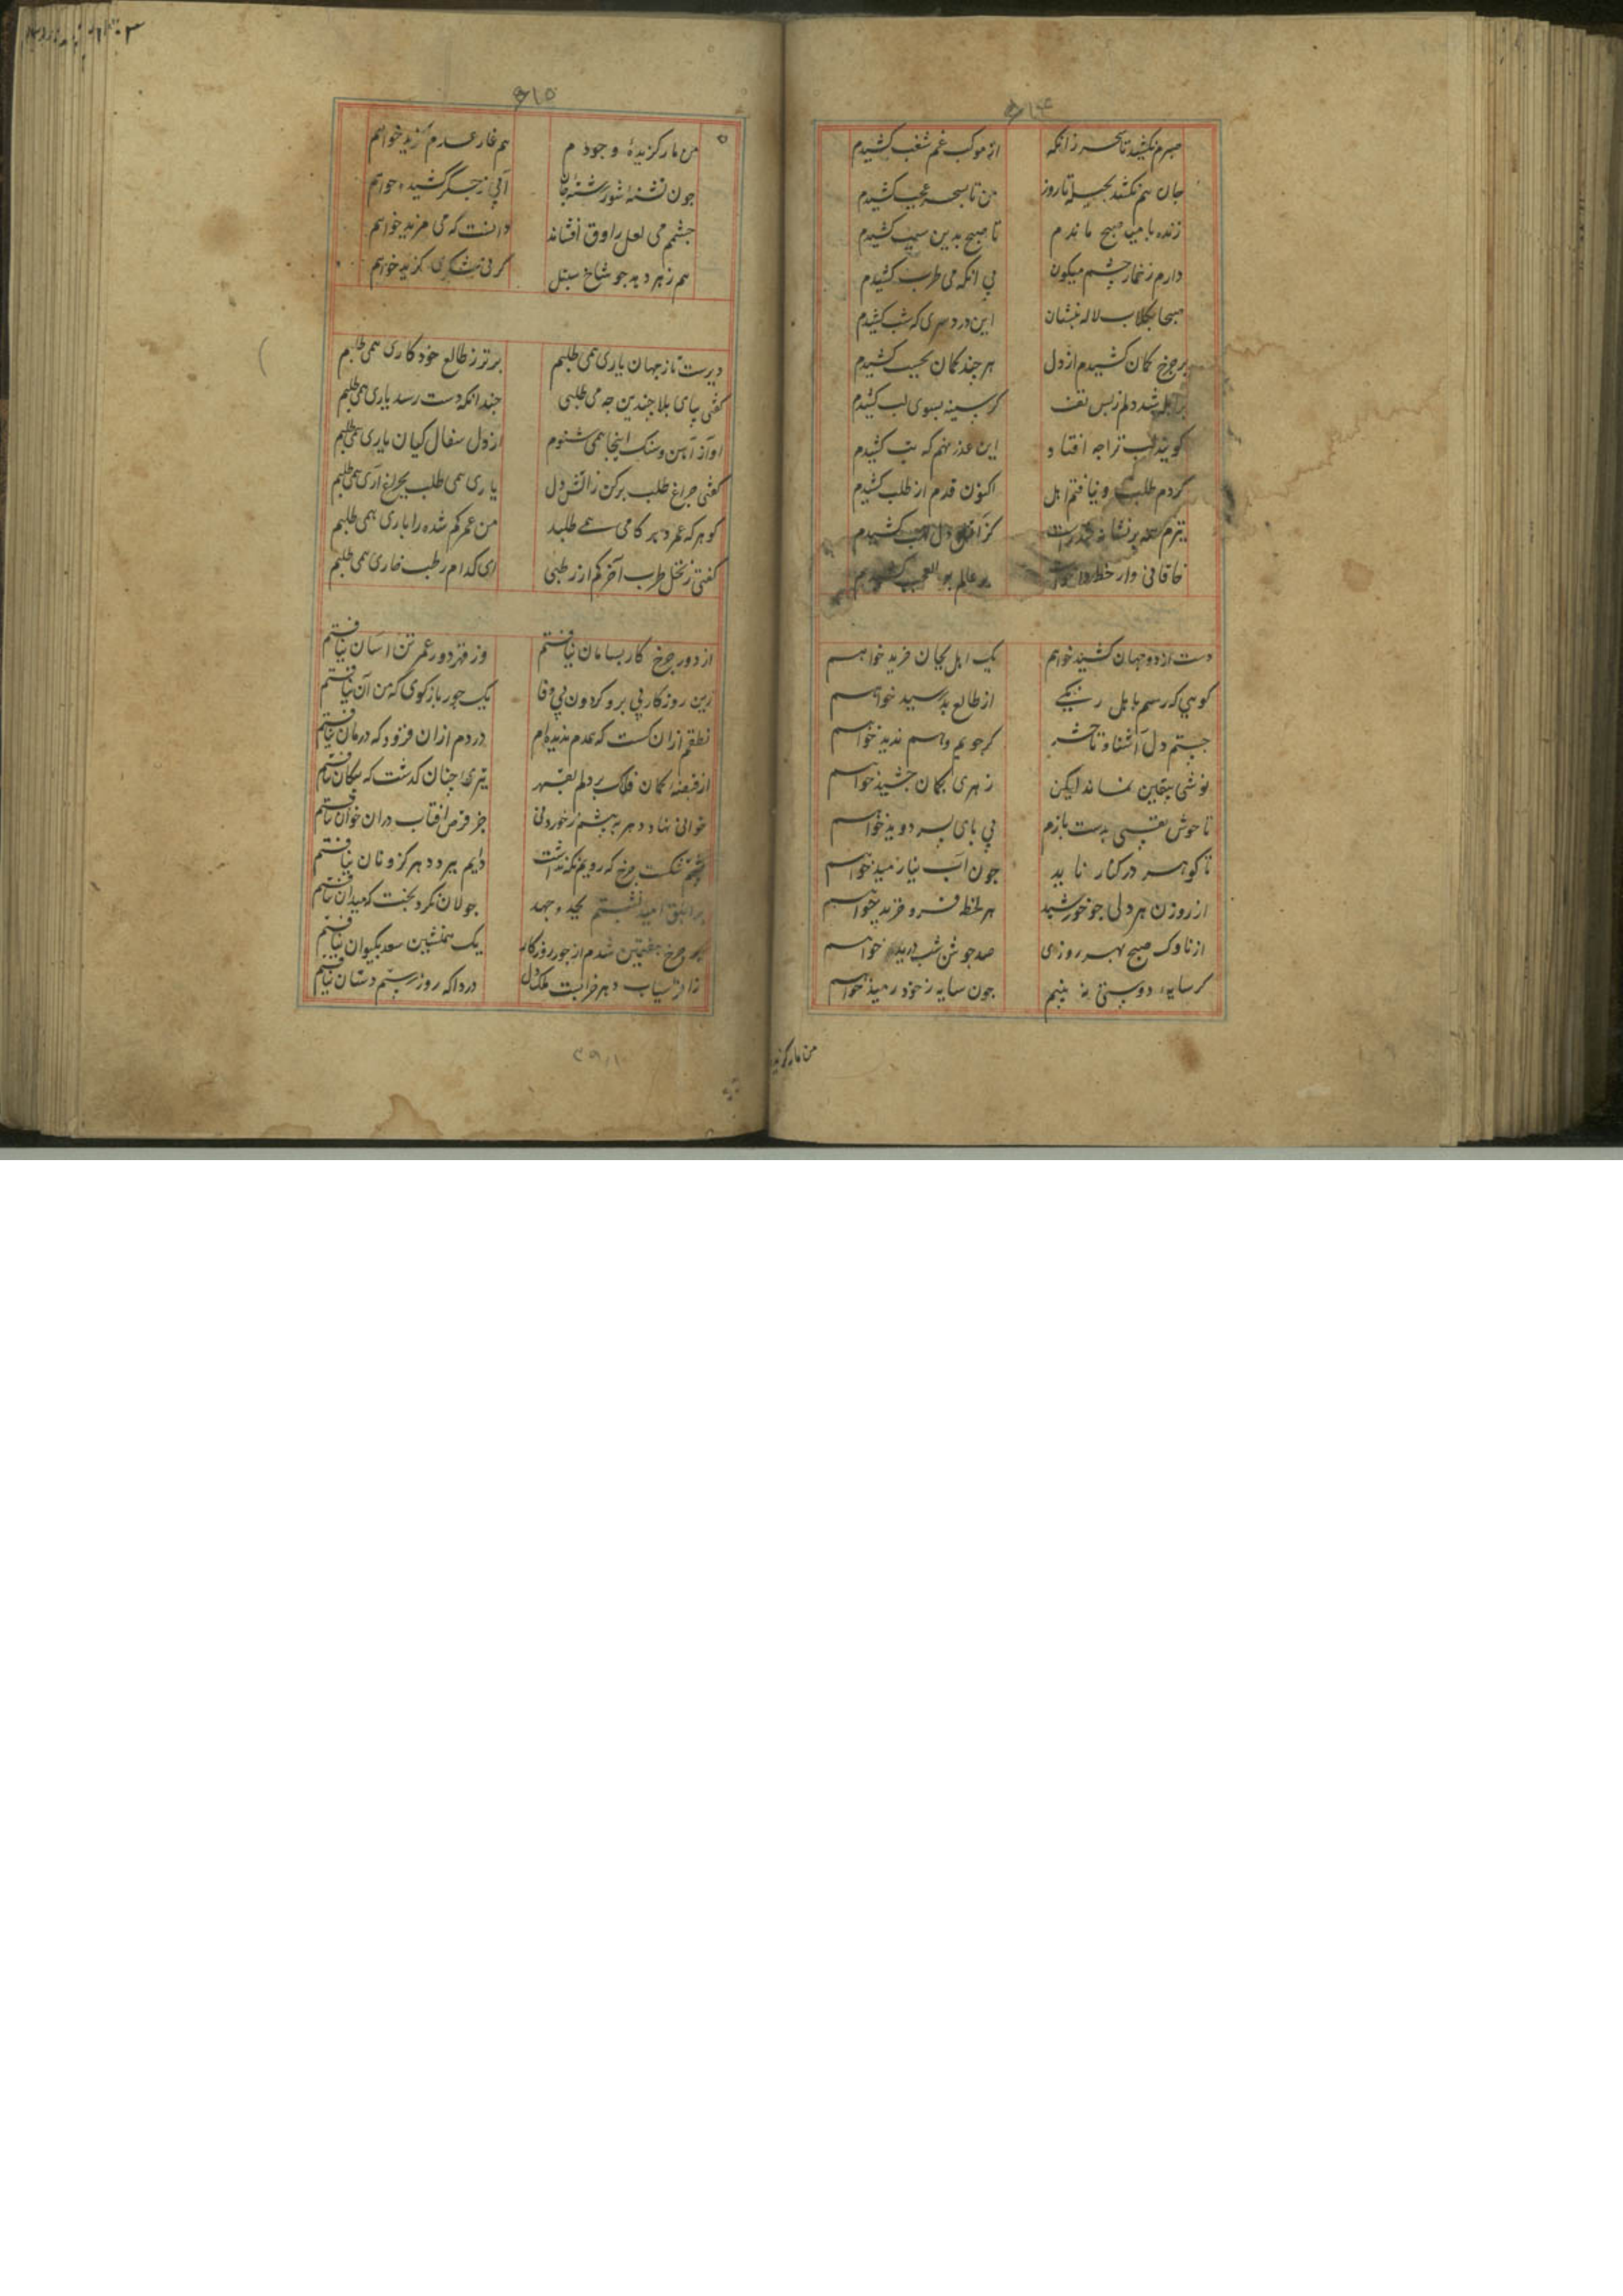 صبرم نکشید تا سحر زانکه
از موکب غم شغب کشیدم
جان هم نکشد بحیله تا روز
من تا بسحر عجب کشیدم
زنده بامید صبح ماندم
تا صبح بدین سبب کشیدم
دارم ز خمار چشم میکون
بی انکه می طرب کشیدم
صبحا بکلاب لاله بنشان
این درد سری که شب کشیدم
بر جرخ کمان کشیدم از دل
هر چند کمان بحیب کشیدم
شد دلم ز بس تف
کز سینه بسوی لب کشیدم
کویند لب ترا جه افتاد
این عذر نهم که تب کشیدم
کردم طلب و نیافتم اهل
اکنون قدم از طلب کشیدم
تیرم همه بر نشانه
کز دل کشیدم
خاقانی وار خط
بر عالم بو العجب کشیدم
دست از دو جهان کشید خواهم
یک اهل بجان خرید خواهم
کوهی که رسم باهل رنکی
از طالع بد رسید خواهم
جستم دل آشنا و تا حشر
کر جویم و هم ندید خواهم
نوشی بیقین نماند لیکن
زهری بکمان جشید خواهم
تا خوش نفسی بدست بازم
بی پای بسر دوید خواهم
تا کوهر در کنار ناید
جون آب نیارمید خواهم
از روزن هر دلی جو خورشید
هر لحظه فرو خزید خواهم
از ناوک صبح بهر روزی
صد جوشن شب درید خواهم
کر سایه دوستی نه بینم
جون سایه ز خود رمید خواهم
من مار کزیده
۶۱۵
من مار کزیدهٔ وجودم
هم غار عدم کزید خواهم
جون تشنهٔ شور رشتهٔ جان
آبی ز جکر کشید خواهم
جشمم می لعل راوق افشاند
دانست که می مزید خواهم
هم زهر دهد جو شاخ سنبل
کر نی شکری کزید خواهم
دیرست تا ز جهان یاری همی طلبم
برتر ز طالع خود کاری همی طلبم
کفتی بپای بلا جندین جه می طلبی
جندانکه دست رسد یاری همی طلبم
آواز آهن و سنک اینجا همی شنوم
از دل سفال کیان یاری همی طلبم
کفتی جراغ طلب برکن ز آتش دل
یاری همی طلب بجراغ آری همی طلبم
کو هر که عمر دبر کامی همی طلبد
من عمر کم شده را باری همی طلبم
کفتی ز نخل طرب آخر کم از رطبی
ای کدام رطب خاری همی طلبم
از دور جرخ کار بسامان نیافتم
وز دور عمر تن آسان نیافتم
زین روزکار بی بر و کردون بی وفا
یک جور بازکوی که من آن نیافتم
نطقم ازان کست که همدم ندیده‌ام
دردم ازان فزود که درمان نیافتم
از قبضهٔ کمان فلک بر دلم بقهر
تیری جنان کذشت که بیکان نیافتم
خوانی نهاد دهر به پیشم ز خوردنی
جز قرص آفتاب دران خوان نیافتم
شکست جرخ که رویم نکه نداشت
دلیم ببرد دهر کزو نان نیافتم
بر ابلق امید نشستم بجد و جهد
جولان نکرد بخت که میدان نیافتم
بر جرخ هفتمین شدم از جور روزکار
یک همنشین سعد بکیوان نیافتم
ز افراسیاب دهر خرابست ملک دل
دردا که روز رستم دستان نیافتم